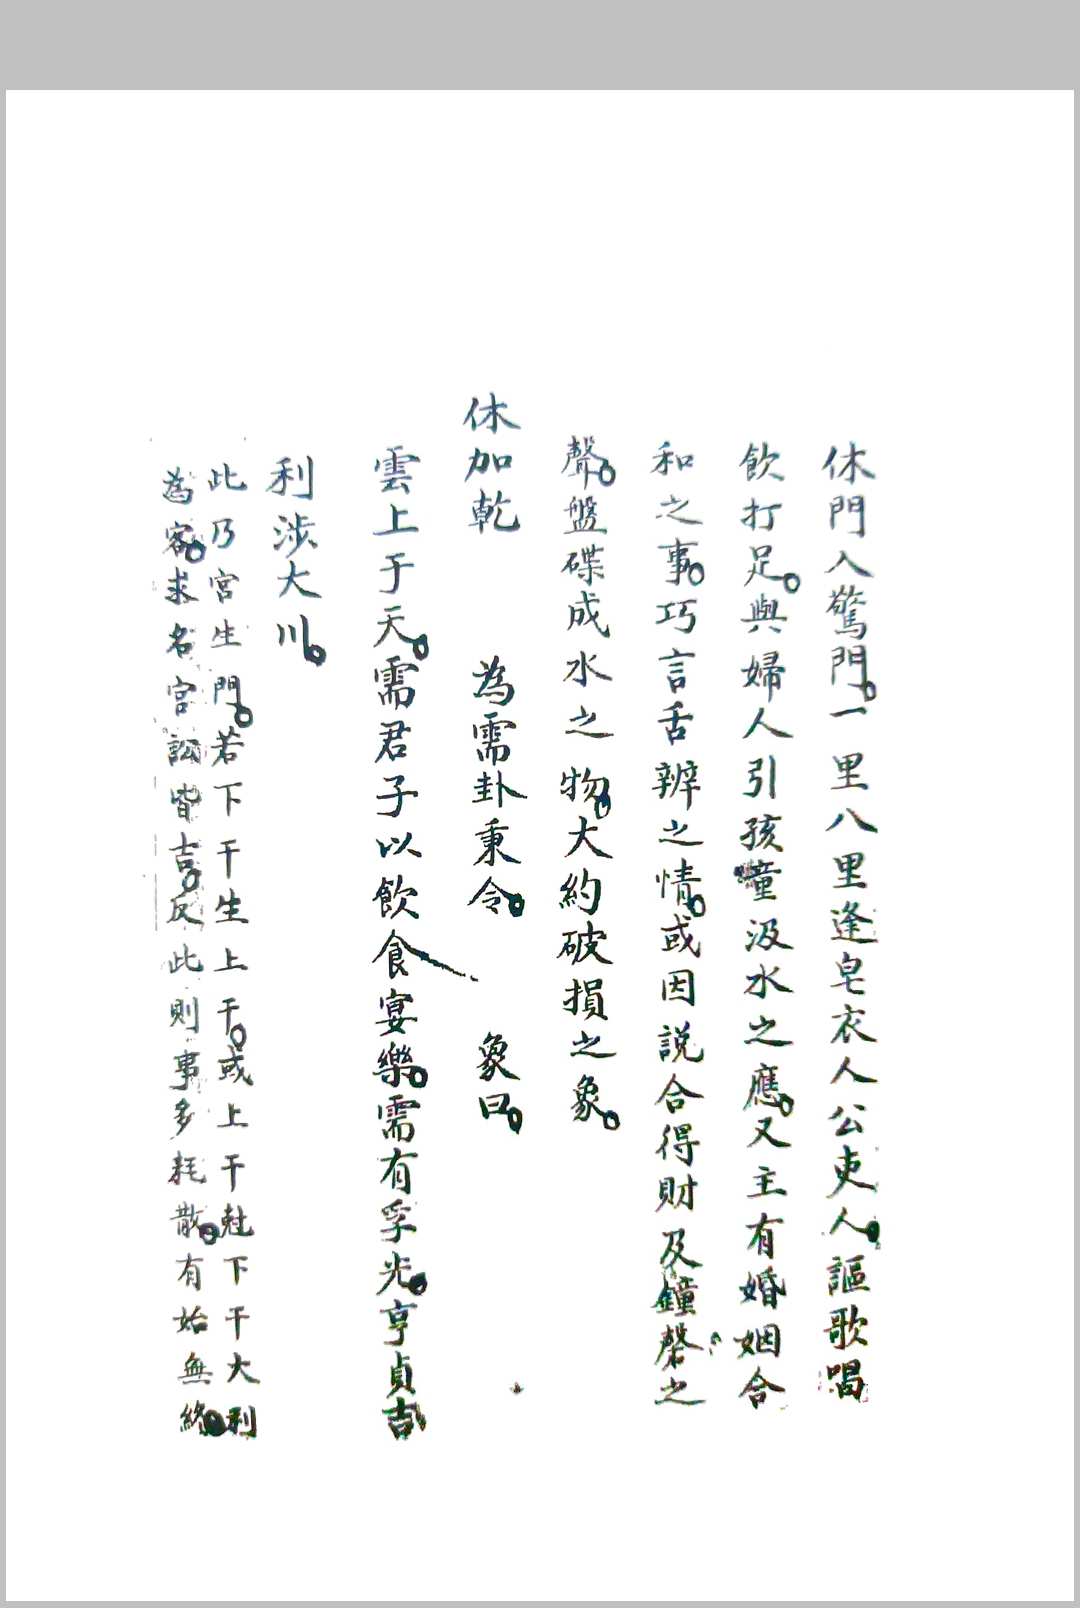 休門入驚門。一里八里逢皂衣人公吏人。謳歌唱
飲打足。與婦人引孩童汲水之應。又主有婚姻合
和之事。巧言舌辨之情。或因説合得財及鐘磬之
聲。盤碟成水之物。大約破損之象。
休加乾 為需卦秉令。 象曰。
雲上于天。需君子以飲食宴樂。需有孚光。亨貞吉
利涉大川。
此乃宮生門。若下干生上干。或上干尅下干大利
為客。求名官訟皆吉。反此則事多耗散。有始無終。